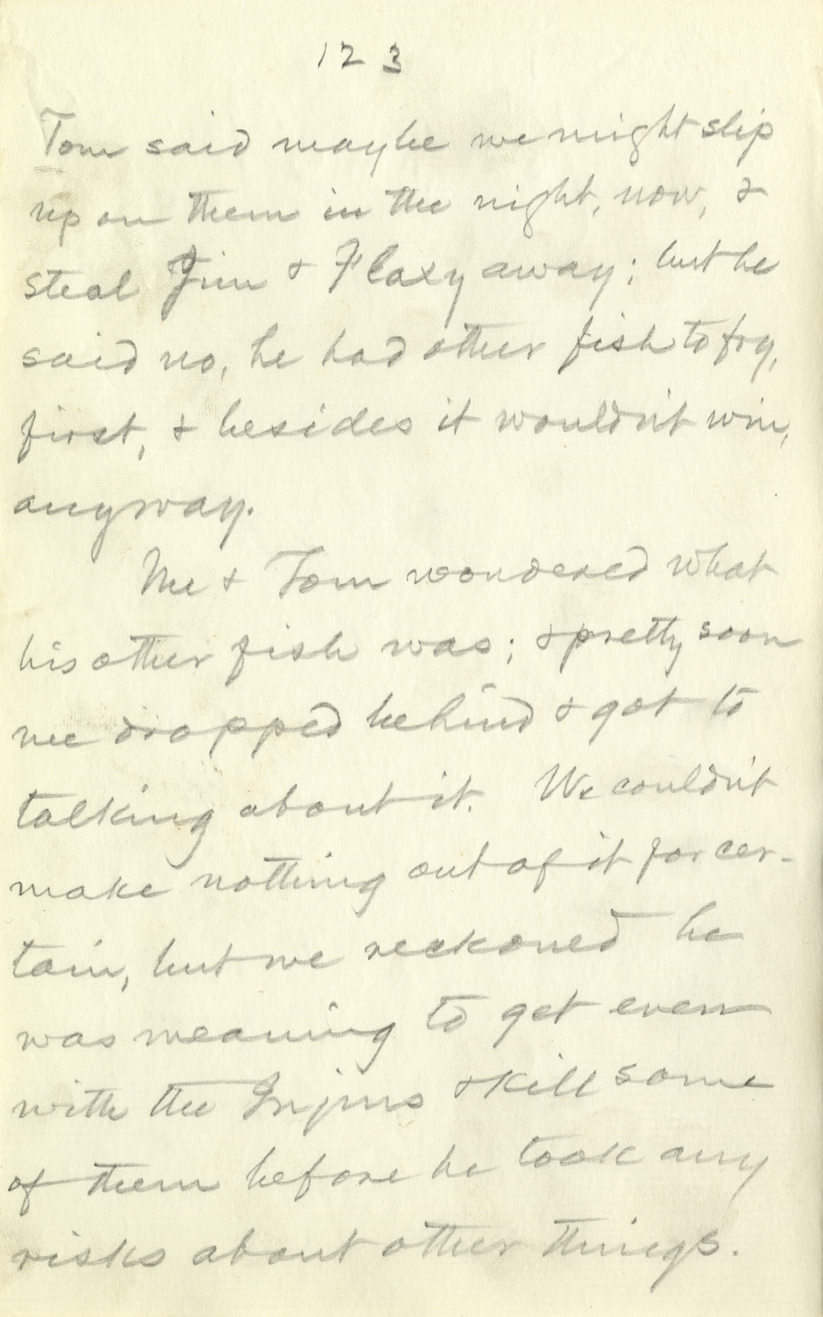 123
Tom said maybe we might slip
up on them in the night, now, &
steal Jim & Flaxy away; but he
said no, he had other fish to fry,
first, & besides it wouldn't win,
anyway.
Me & Tom wondered what
his other fish was; & pretty soon
we dropped behind & got to
talking about it. We couldn't
make nothing out of it for cer-
tain, but we reckoned he
was meaning to get even
with the Injuns & kill some
of them before he took any
risks about other things.